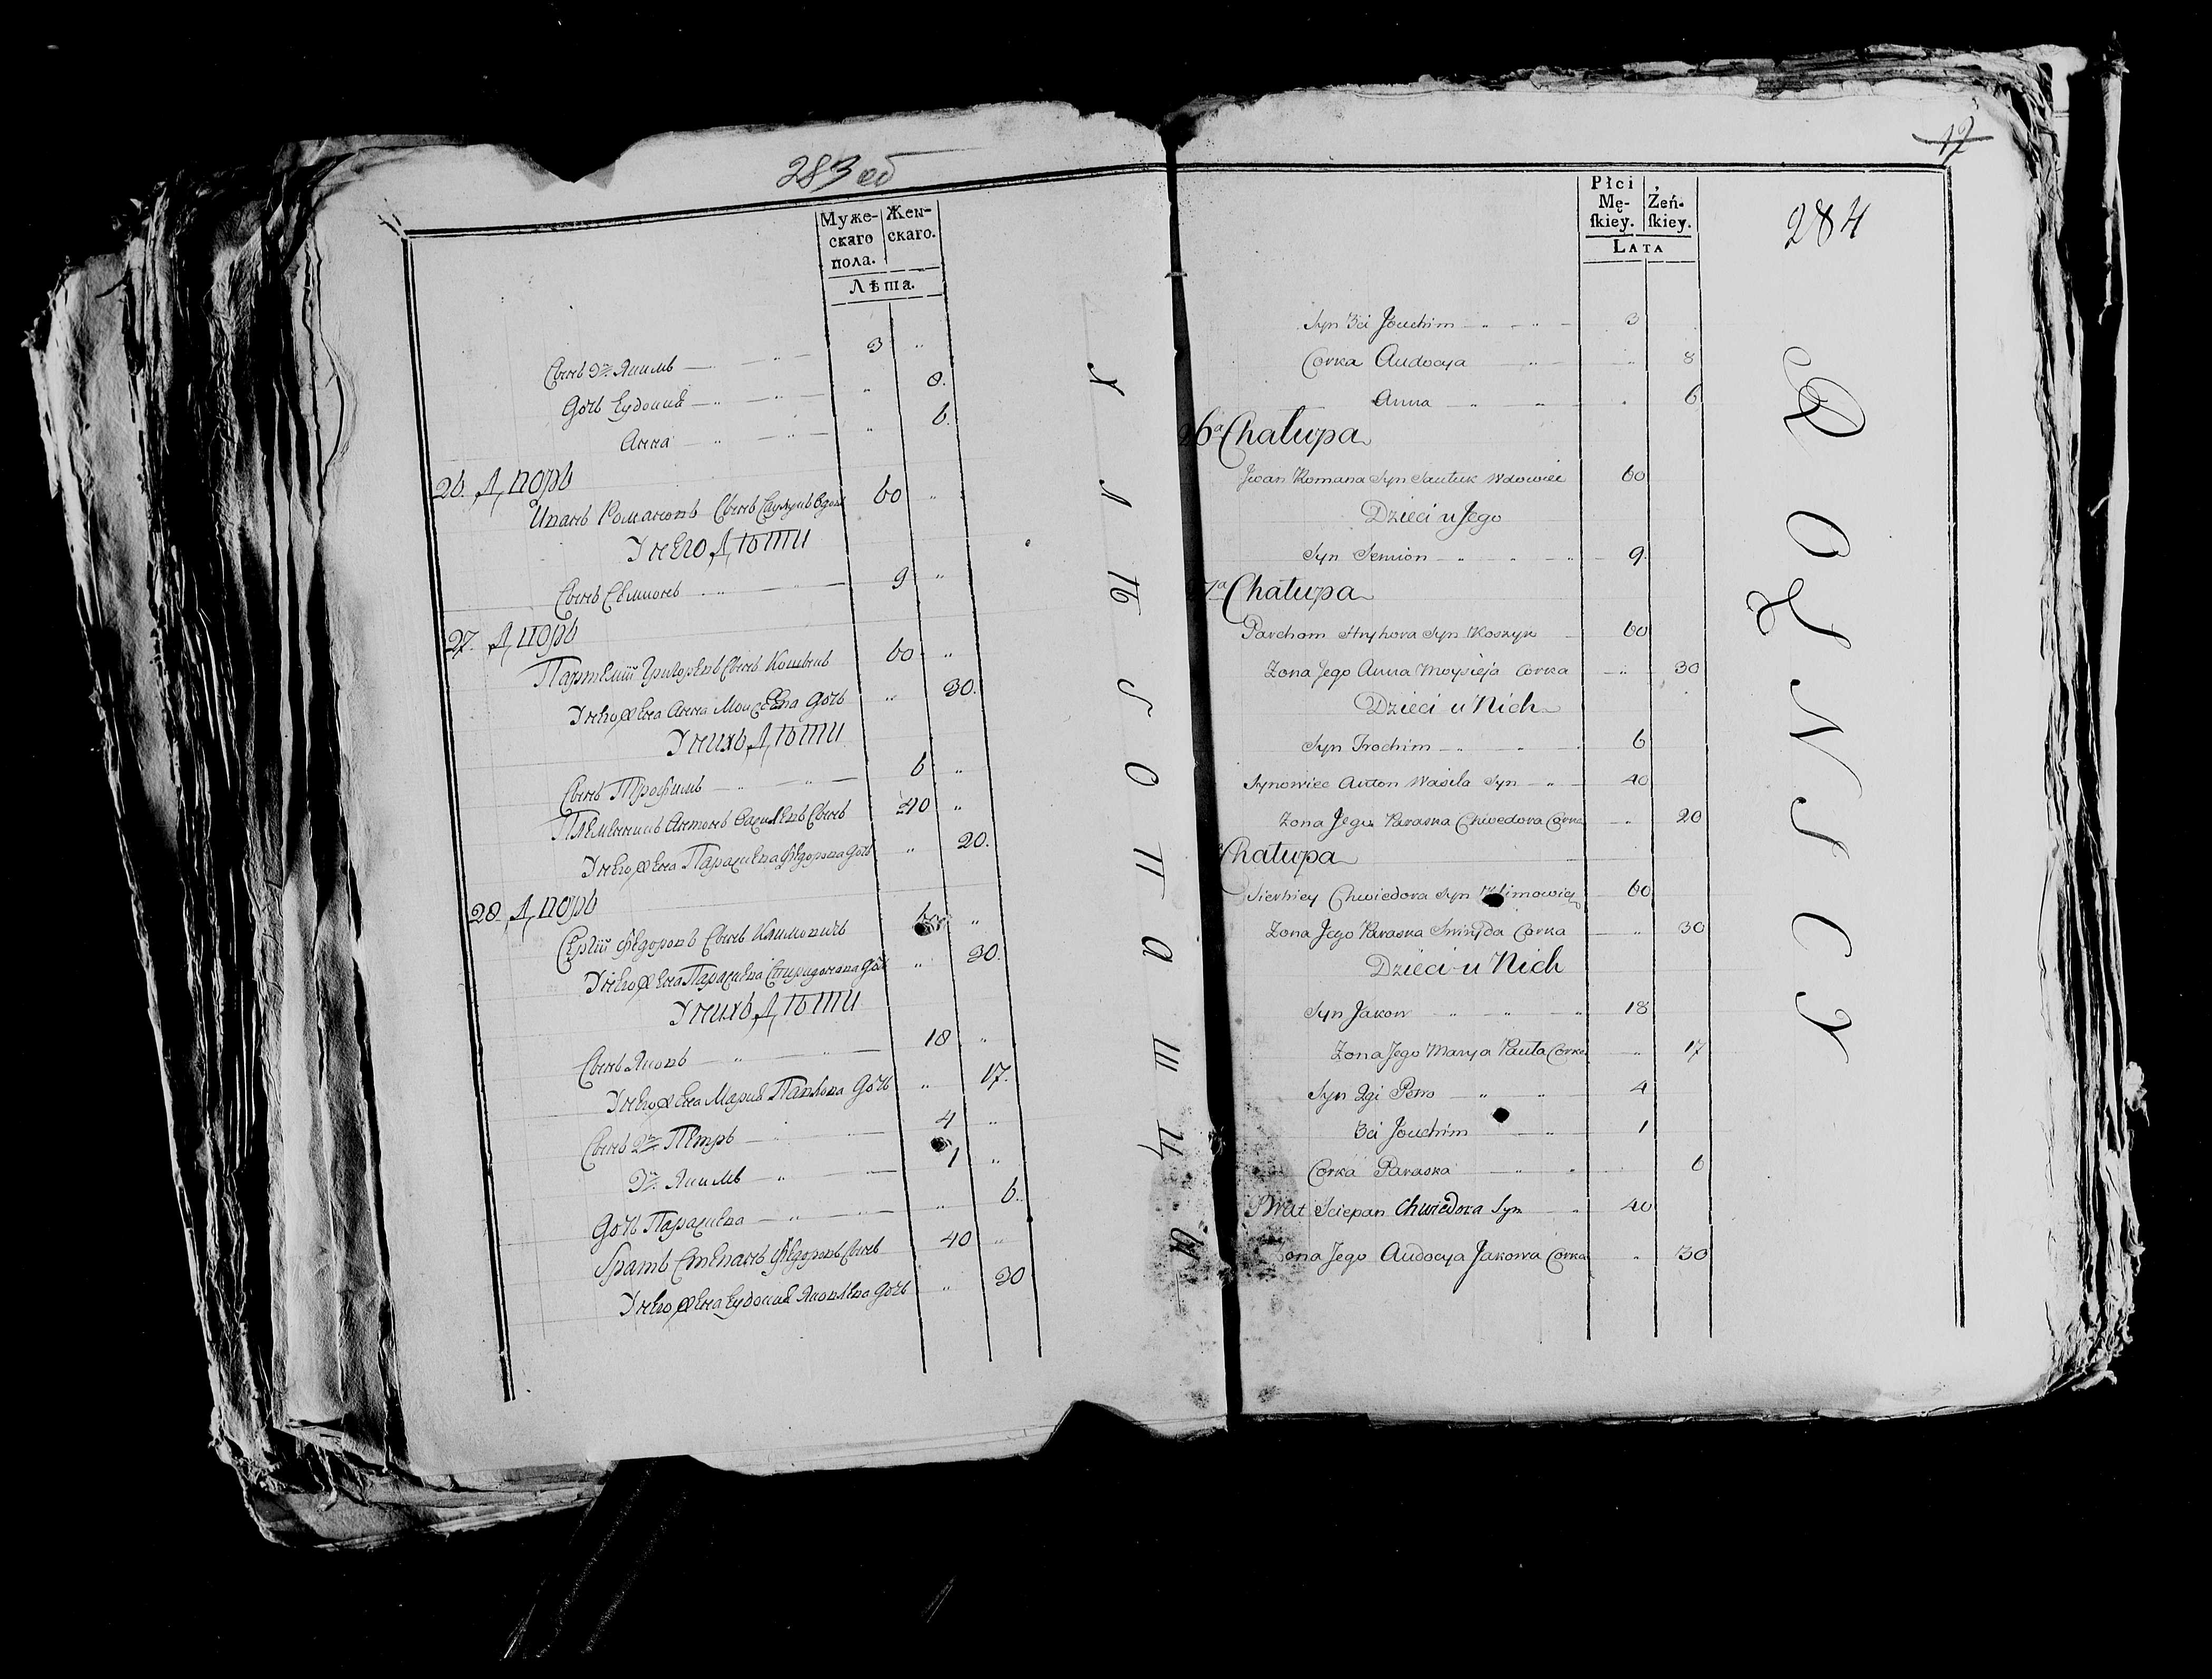 283 об
Муже-
скаго
пола.
Жен-
скаго.
Лѣта.
Сынъ 3й Якимъ 3 „
Дочь Еудокия „ 8.
Анна „ 6.
26. Дворъ
Иванъ Романовъ Сынъ Саутукъ Вдов 60 „
У него Дѣти
Сынъ Семионъ 9 „
27. Дворъ
Парфений Григорьевъ Сынъ Кошыкъ 60 „
У него жена Анна Моисеева Дочь „ 30.
У нихъ Дѣти
Сынъ Трофимъ 6 „
Племянникъ Антонъ Василевъ Сынъ 40 „
У него жена Парасцева Федорова Дочь „ 20.
28. Дворъ
Сергий Федоровъ Сынъ Климовичъ 60 „
У него жена Парасцева Спиридонова Дочь „ 30.
У нихъ Дѣти
Сынъ Яковъ 18 „
У него жена Мария Павлова Дочь „ 17.
Сынъ 2й Петръ 4 „
3й Якимъ 1 „
Дочь Парасцева „ 6.
Братъ Степанъ Федоровъ Сынъ 40 „
У него жена Еудокия Яковлева Дочь „ 30
12
284
Płci
Mę-
skiey.
Żeń-
skiey.
LATA
Syn 3ci Jouchim 3
Corka Audocya „ 8
Anna „ 6
6a Chałupa
Jwan Romana Syn Sautuk Wdowiec 60
Dzieci u Jego
Syn Semion 9
7a Chałupa
Parchom Hryhora Syn Koszyk 60
Zona Jego Anna Moysieja Corka „ 30
Dzieci u Nich
Syn Trochim 6
Synowiec Anton Wasila Syn 40
Zona Jego Paraska Chwedora Corka „ 20
Chałupa
Sierhiey Chwiedora Syn Klimowicz 60
Zona Jego Paraska Swiryda Corka „ 30
Dzieci u Nich
Syn Jakow 18
Zona Jego Marya Pauła Corka „ 17
Syn 2gi Petro 4
3ci Jouchim 1
Corka Paraska 6
Brat Sciepan Chwiedora Syn 40
Zona Jego Audocya Jakowa Corka „ 30